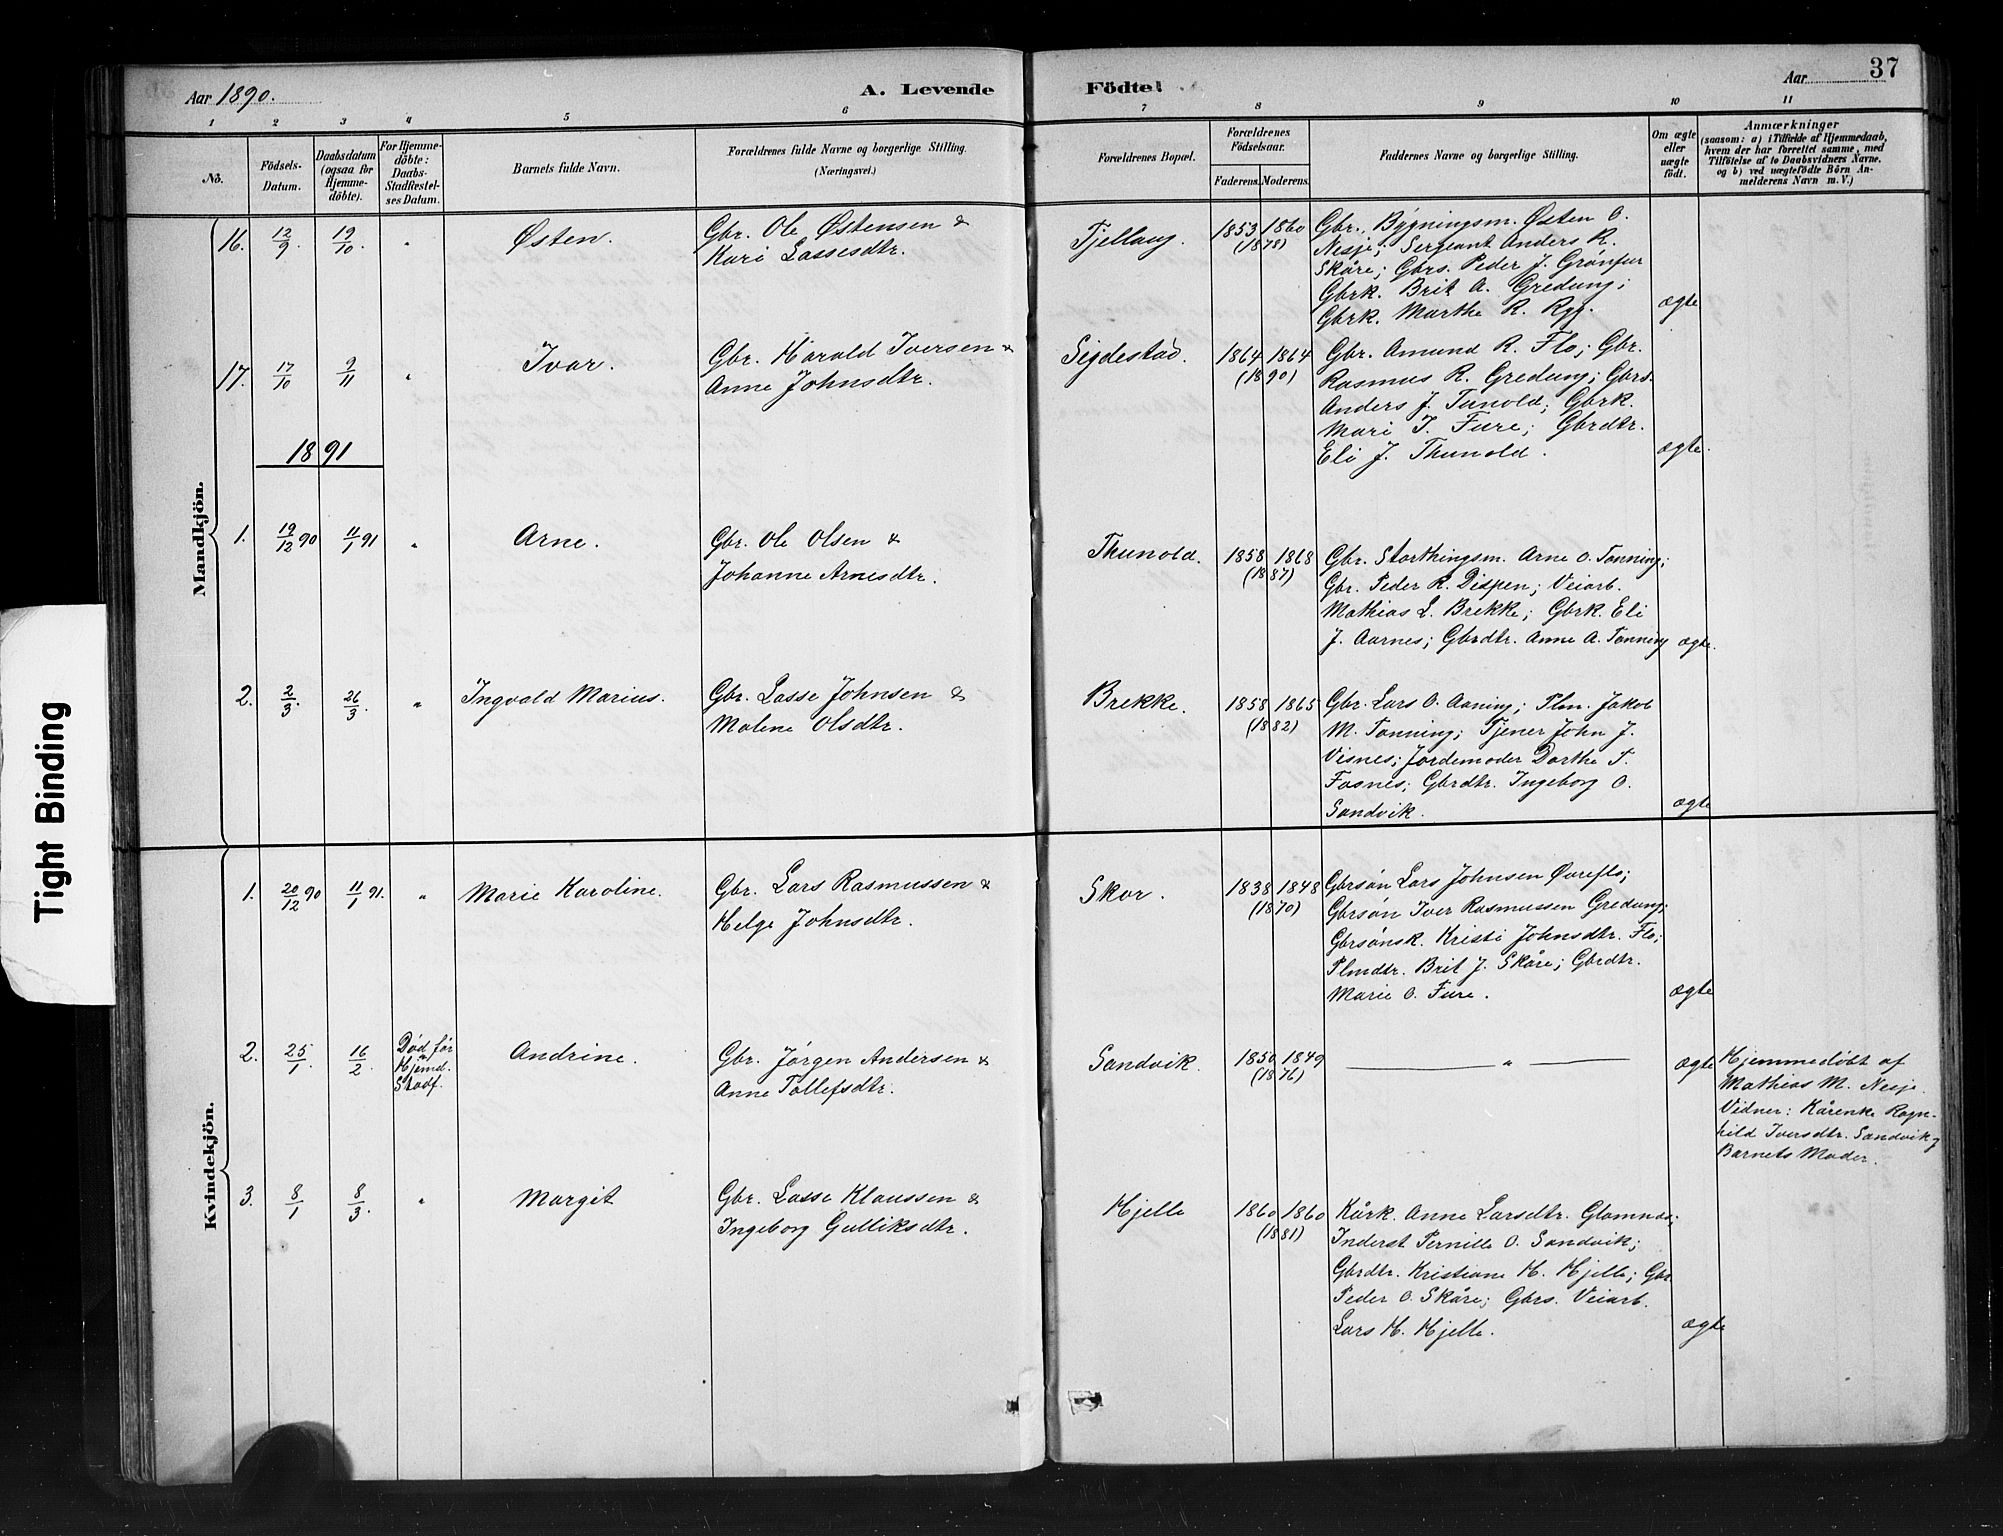 Aar 1890. A. Levende Födte. Aar 37
1 2 3 4 5 6 7 8 9 10 11
No. Födsels-Datum. Daabsdatum (ogsaa for Hjemmedöbte). For Hjemmedöbte: Daabs-Stadfestelses Datum. Barnets fulde Navn. Forældrenes fulde Navne og borgerlige Stilling. (Næringsvei.) Forældrenes Bopæl. Forældrenes Födselsaar. Faderens. Moderens. Faddernes Navne og borgerlige Stilling. Om ægte eller uægte födt. Anmærkninger (saasom: a) i Tilfælde af Hjemmedaab, hvem der har forrettet samme, med Tilföielse af to Daabsvidners Navne. og b) ved uægtefödte Börn Anmelderens Navn m. V.)
Mandkjön.
16. 12/9 19/10 " Østen. Gbr. Ole Østensen &
Kari Lassesdtr.
Tjellaug. 1853 1860
(1878)
Gbr., Bygningsm. Østen O.
Nesje; Sergeant Anders R.
Skåre; Gbrs. Peder J. Grönfur
Gbrk. Brit A. Gredung;
Gbrk. Marthe R. Rygg.
ægte
17. 17/10 9/11 " Ivar. Gbr. Harald Iversen &
Anne Johnsdtr.
Sigdestad. 1864 1864
(1890)
Gbr. Amund R. Flo; Gbr.
Rasmus R. Gredung; Gbrs.
Anders J. Tunold; Gbrk.
Mari T. Fure; Gbrdtr.
Eli J. Thunold.
ægte.
1891
1. 19/12 90 11/1 91 " Arne. Gbr. Ole Olsen &
Johanne Arnesdtr.
Thunold. 1858 1868
(1887)
Gbr. Storthingsm. Arne O. Tonning;
Gbr. Peder R. Dispen; Veiarb.
Mathias L. Brekke; Gbrk. Eli
J. Aarnes; Gbrdtr. Anne A. Tonning
ægte.
2. 2/3. 26/3. " Ingvald Marius. Gbr. Lasse Johnsen &
Malene Olsdtr.
Brekke. 1858 1865
(1882)
Gbr. Lars O. Aaning; Plm. Jakob
M. Tonning; Tjener John J.
Visnes; Jordemoder Dorthe T.
Fosnes; Gbrdtr. Ingeborg O.
Sandvik.
ægte
Kvindekjön.
1. 20/12 90 11/1 91. " Marie Karoline. Gbr. Lars Rasmussen &
Helge Johnsdtr.
Skor. 1838 1848
(1870)
Gbrsøn Lars Johnsen Øvreflo;
Gbrsøn Iver Rasmussen Gredung;
Gbrsønsk. Kristi Johnsdtr. Flo;
Plmdtr. Brit J. Skåre; Gbrdtr.
Marie O. Fure.
ægte
2. 25/1. 16/2. Död før
Hjemd.
Stadf.
Andrine. Gbr. Jørgen Andersen &
Anne Tollefsdtr.
Sandvik. 1850 1849
(1876)
"
ægte
Hjemmedöbt af
Mathias M. Nesje.
Vidner: Kårenke Ragn-
hild Iversdtr. Sandvik og
Barnets Moder.
3. 8/1 8/3. " Margit Gbr. Lasse Klaussen &
Ingeborg Gulliksdtr.
Hjelle 1860 1860
(1881)
Kårk. Anne Larsdtr. Glomnes;
Inderst Pernille O. Sandvik;
Gbrdtr. Kristiane H. Hjelle; Gbr.
Peder O. Skåre; Gbrs. Veiarb.
Lars H. Hjelle.
ægte
Tight Binding